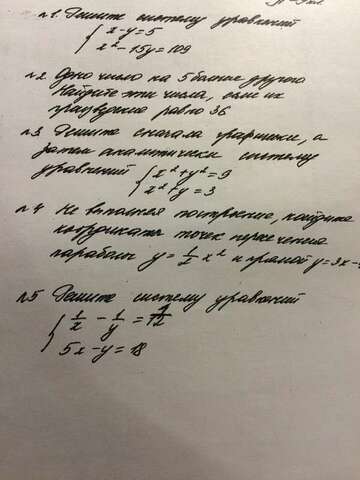 п1. Решите систему уравнений
{ x - y = 5
x² - 15y = 109
п2 Одно число на 5 больше другого
Найдите эти числа, если их
произведение равно 36
п3 Решите сначала графически, а
затем аналитически систему
уравнений { x² + y² = 9
x² + y = 3
п4 Не выполняя построение, найдите
координаты точек пересечения
параболы y = 1/2 x² и прямой y = 3x -
п5 Решите систему уравнений
{ 1/x - 1/y =
5x - y = 18